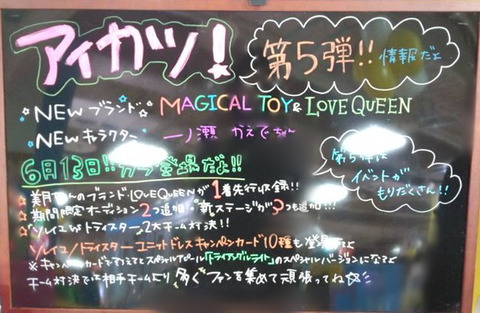 アイカツ！
第5弾!! 情報だよ
NEWブランド MAGICAL TOY & LOVE QUEEN
NEWキャラクター 一ノ瀬 かえでちゃん
6月13日!! 登場だよ!!
第5弾は
イベントが
もりだくさん!!
美月さんのブランド・LOVE QUEENが1着先行収録!!
期間限定オーディション2つ追加・新ステージが つも追加!!!
「ソレイユVSトライスター」2大チーム対決!!
ソレイユ/トライスター ユニットドレスキャンペンカード10種も登場するよ
※キャンペンカードをすべてそろえるとスペシャルアピール「トライアングルライト」のスペシャルバージョンになるよ
チーム対決では相手チームより多くファンを集めて頑張ってね☆